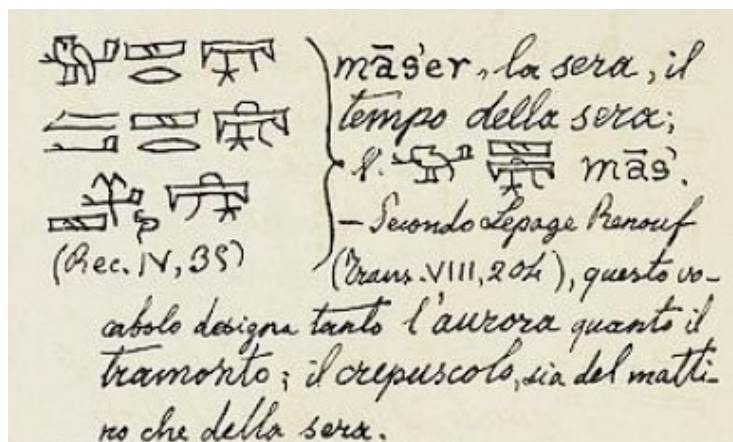 māśer, la sera, il
tempo della sera;
V. māś.
— Secondo Lepage Renouf
(Rec. IV, 35) (Trans. VIII, 204), questo vo-
cabolo designa tanto l'aurora quanto il
tramonto; il crepuscolo, sia del matti-
no che della sera.